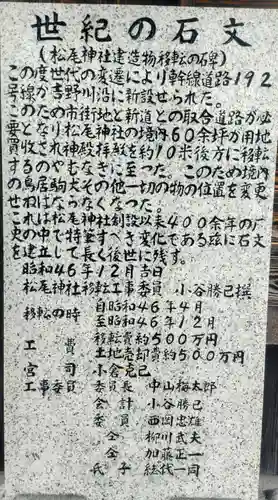 世紀の石文
(松尾神社建造物移転の碑)
この度世代の変遷により幹線道路192
号線が吉野川沿に新設せられた。
このため市街地と新道との取合道路が必
要となり松尾神社の境内60余坪が用地
買収され神殿拝殿を約10米後方に移転
するのやむなきに至った。このため境内
の鳥居駒犬その他一切の物の位置を変更
せねばならなくなった。
これは松尾神社創設以来400余年の歴
史の中で特筆すべき変化である茲に石文
を建立して長く後世に残す。
昭和46年12月吉日
松尾神社移転工事委員 小谷勝巳撰
移転の時 自昭和46年4月
至昭和46年12月
工費 移転費約500万円
土地売却費約500万円
宮司 小倉克己
工事委員 委員長 中山梅太郎
会計 小谷勝巳
委員 西岡忠雄
仝 柳川武夫
仝 加藤正一
氏子総代一同